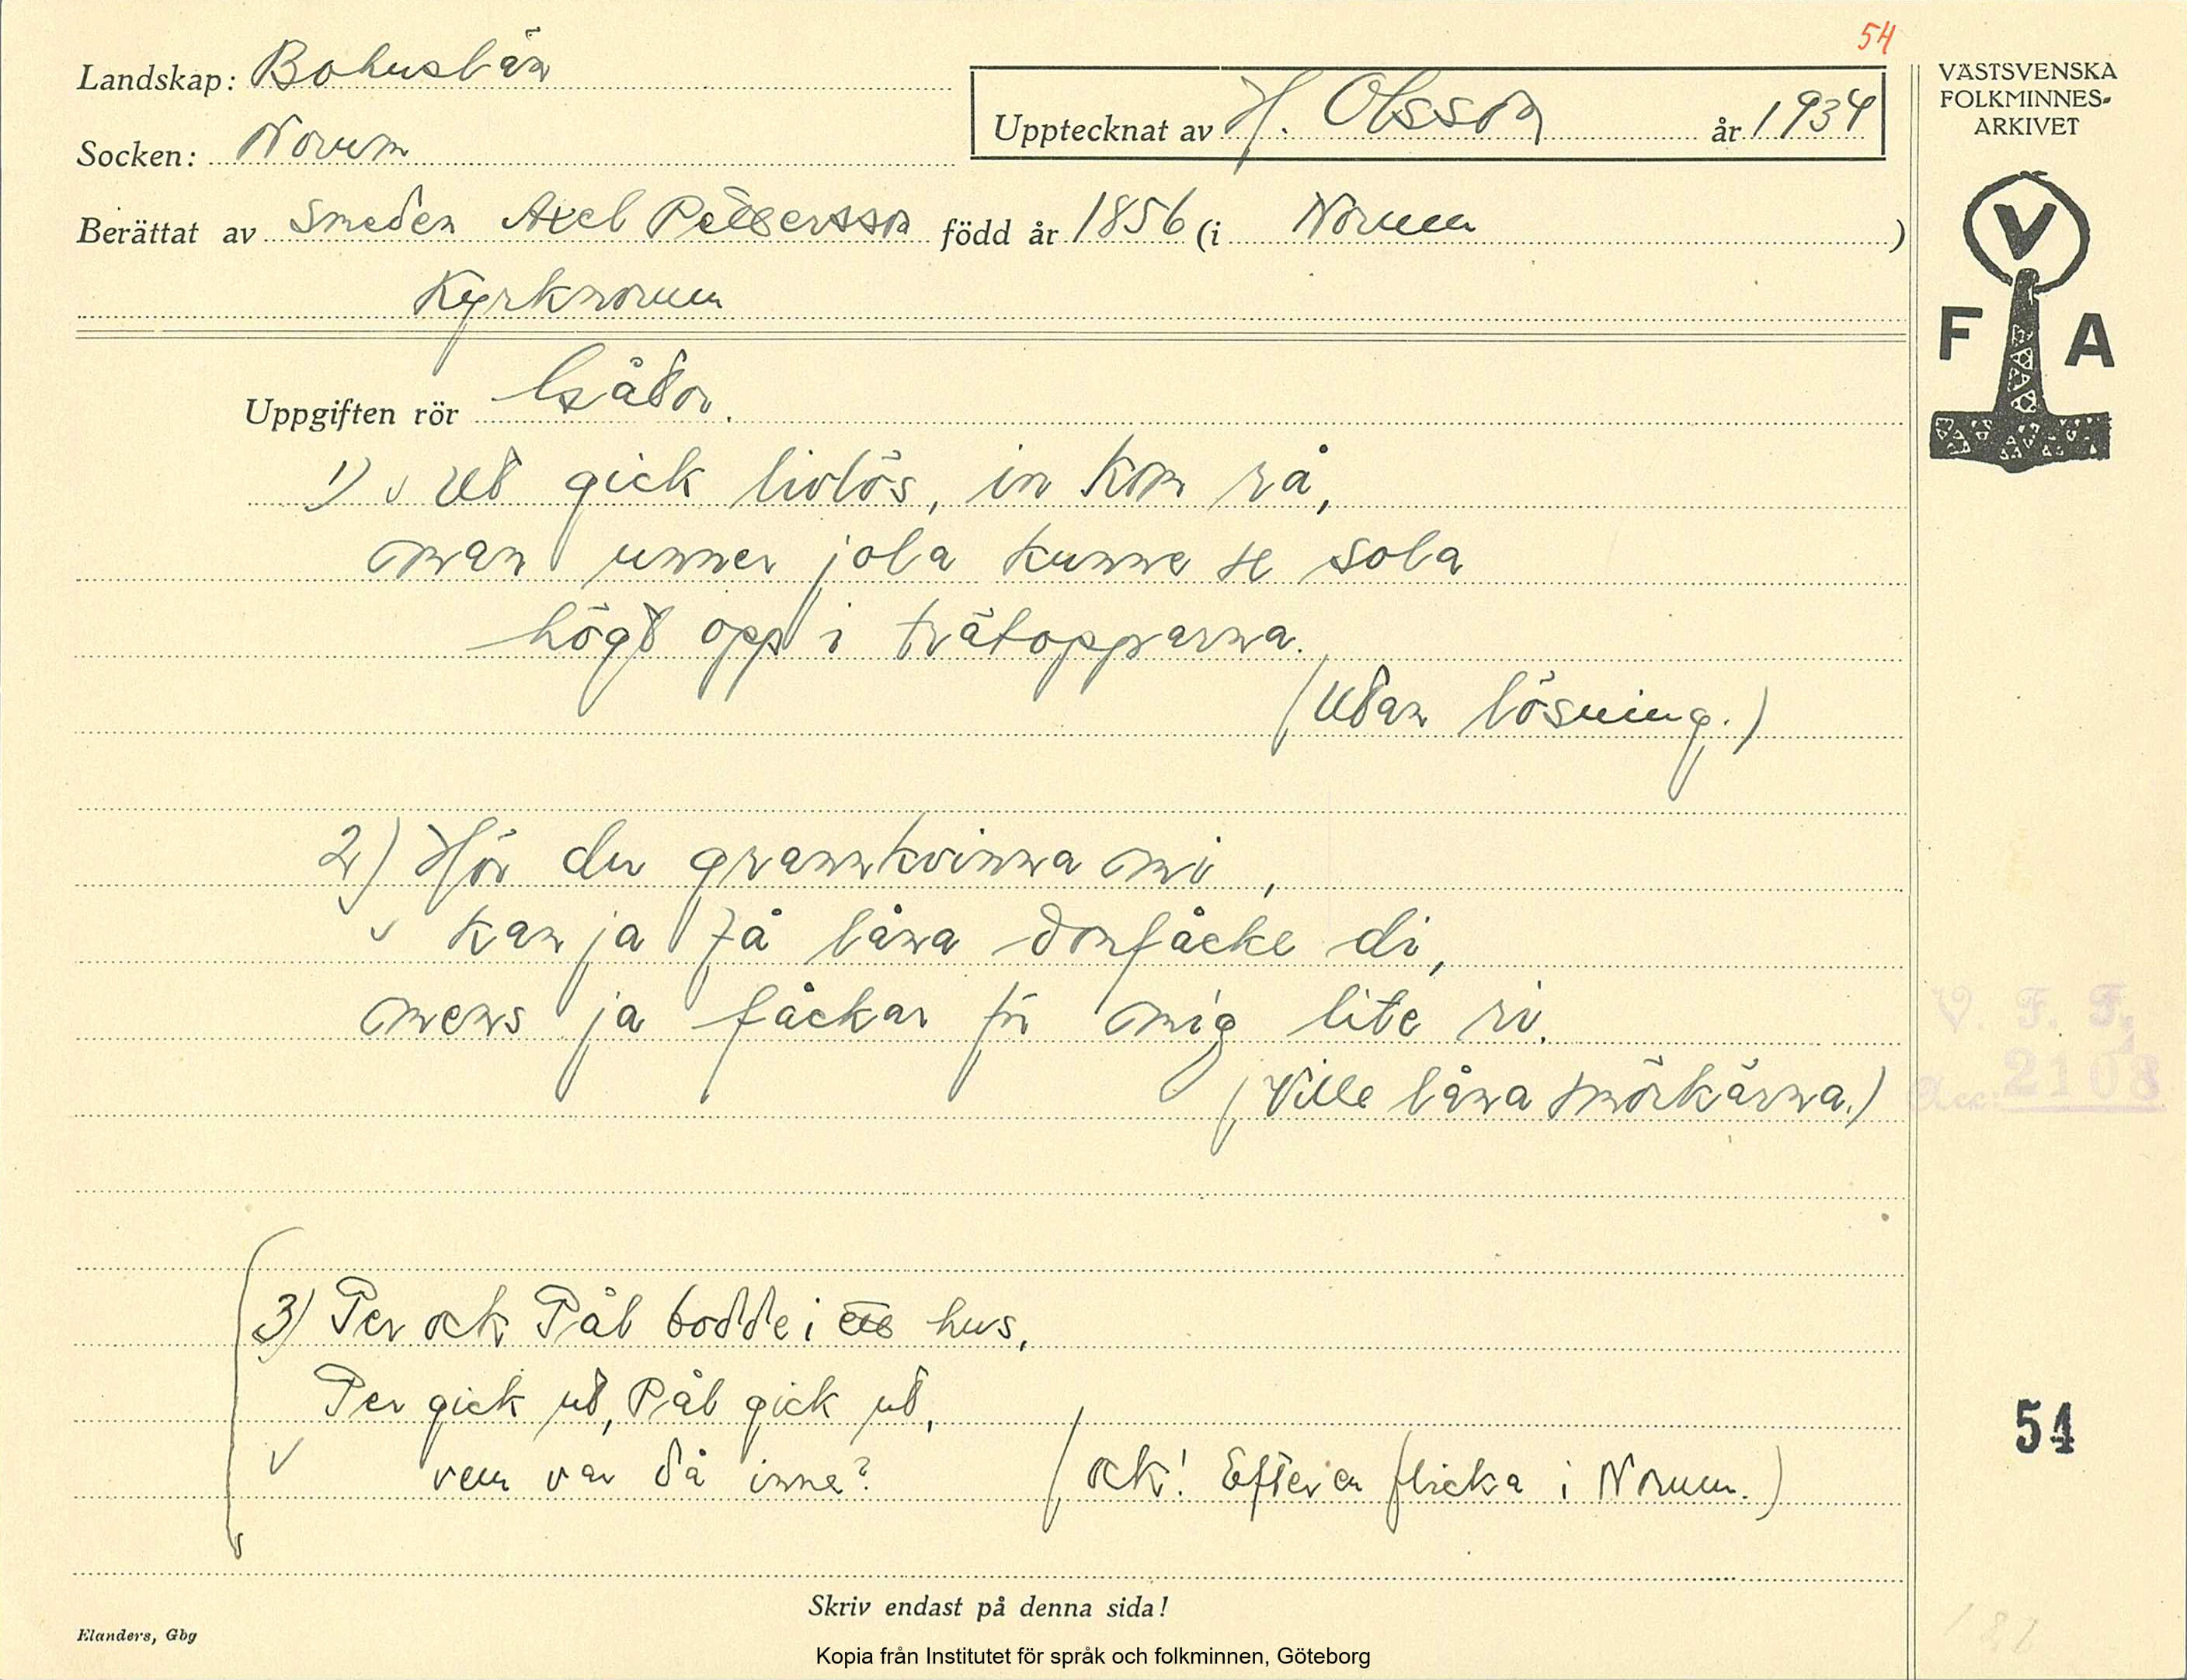 54
Landskap: Bohuslän
Upptecknat av H. Olsson år 1934
VÄSTSVENSKA
FOLKMINNES-
ARKIVET
Socken: Norum
Berättat av Smeden Axel Pettersson född år 1856 (i Norum)
Kyrknorum
V
F A
Uppgiften rör Gåtor.
1) Ut gick livlös, in kom rå,
man unner jola kunne se sola
högt opp i trätopparna.
(Utan lösning.)
2) Hör du grannkvinna mi,
kan ja få låna domfåcke di,
mens ja fåckar för mig lite ri.
(Ville låna smörkärna.)
V. F. F.
Acc: 2108
3) Per ock Pål bodde i ett hus,
Per gick ut, Pål gick ut,
vem var då inne? (ock! Efter en flicka i Norum.)
54
Skriv endast på denna sida!
Elanders, Gbg
Kopia från Institutet för språk och folkminnen, Göteborg